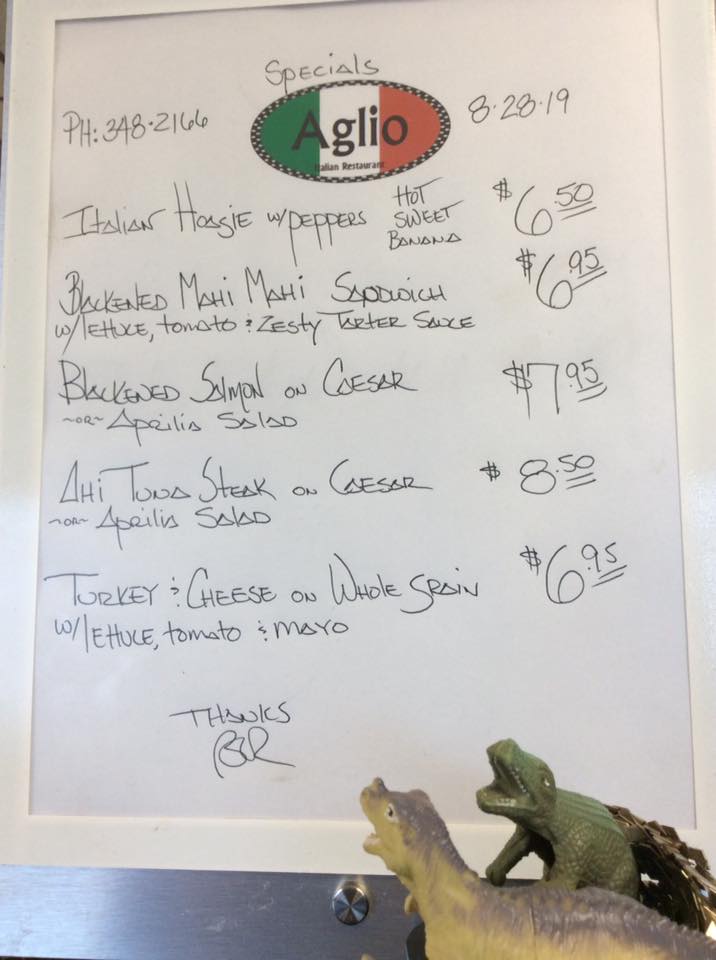 Specials
PH: 348-2166
Aglio
Italian Restaurant
8-28-19
Italian Hoagie w/peppers HOT SWEET BANANA $6.50
Blackened Mahi Mahi Sandwich $6.95
w/lettuce, tomato & Zesty Tarter Sauce
Blackened Salmon on Caesar $7.95
~or~ Aprilia Salad
Ahi Tuna Steak on Caesar $8.50
~or~ Aprilia Salad
Turkey & Cheese on Whole Grain $6.95
w/lettuce, tomato & mayo
THANKS